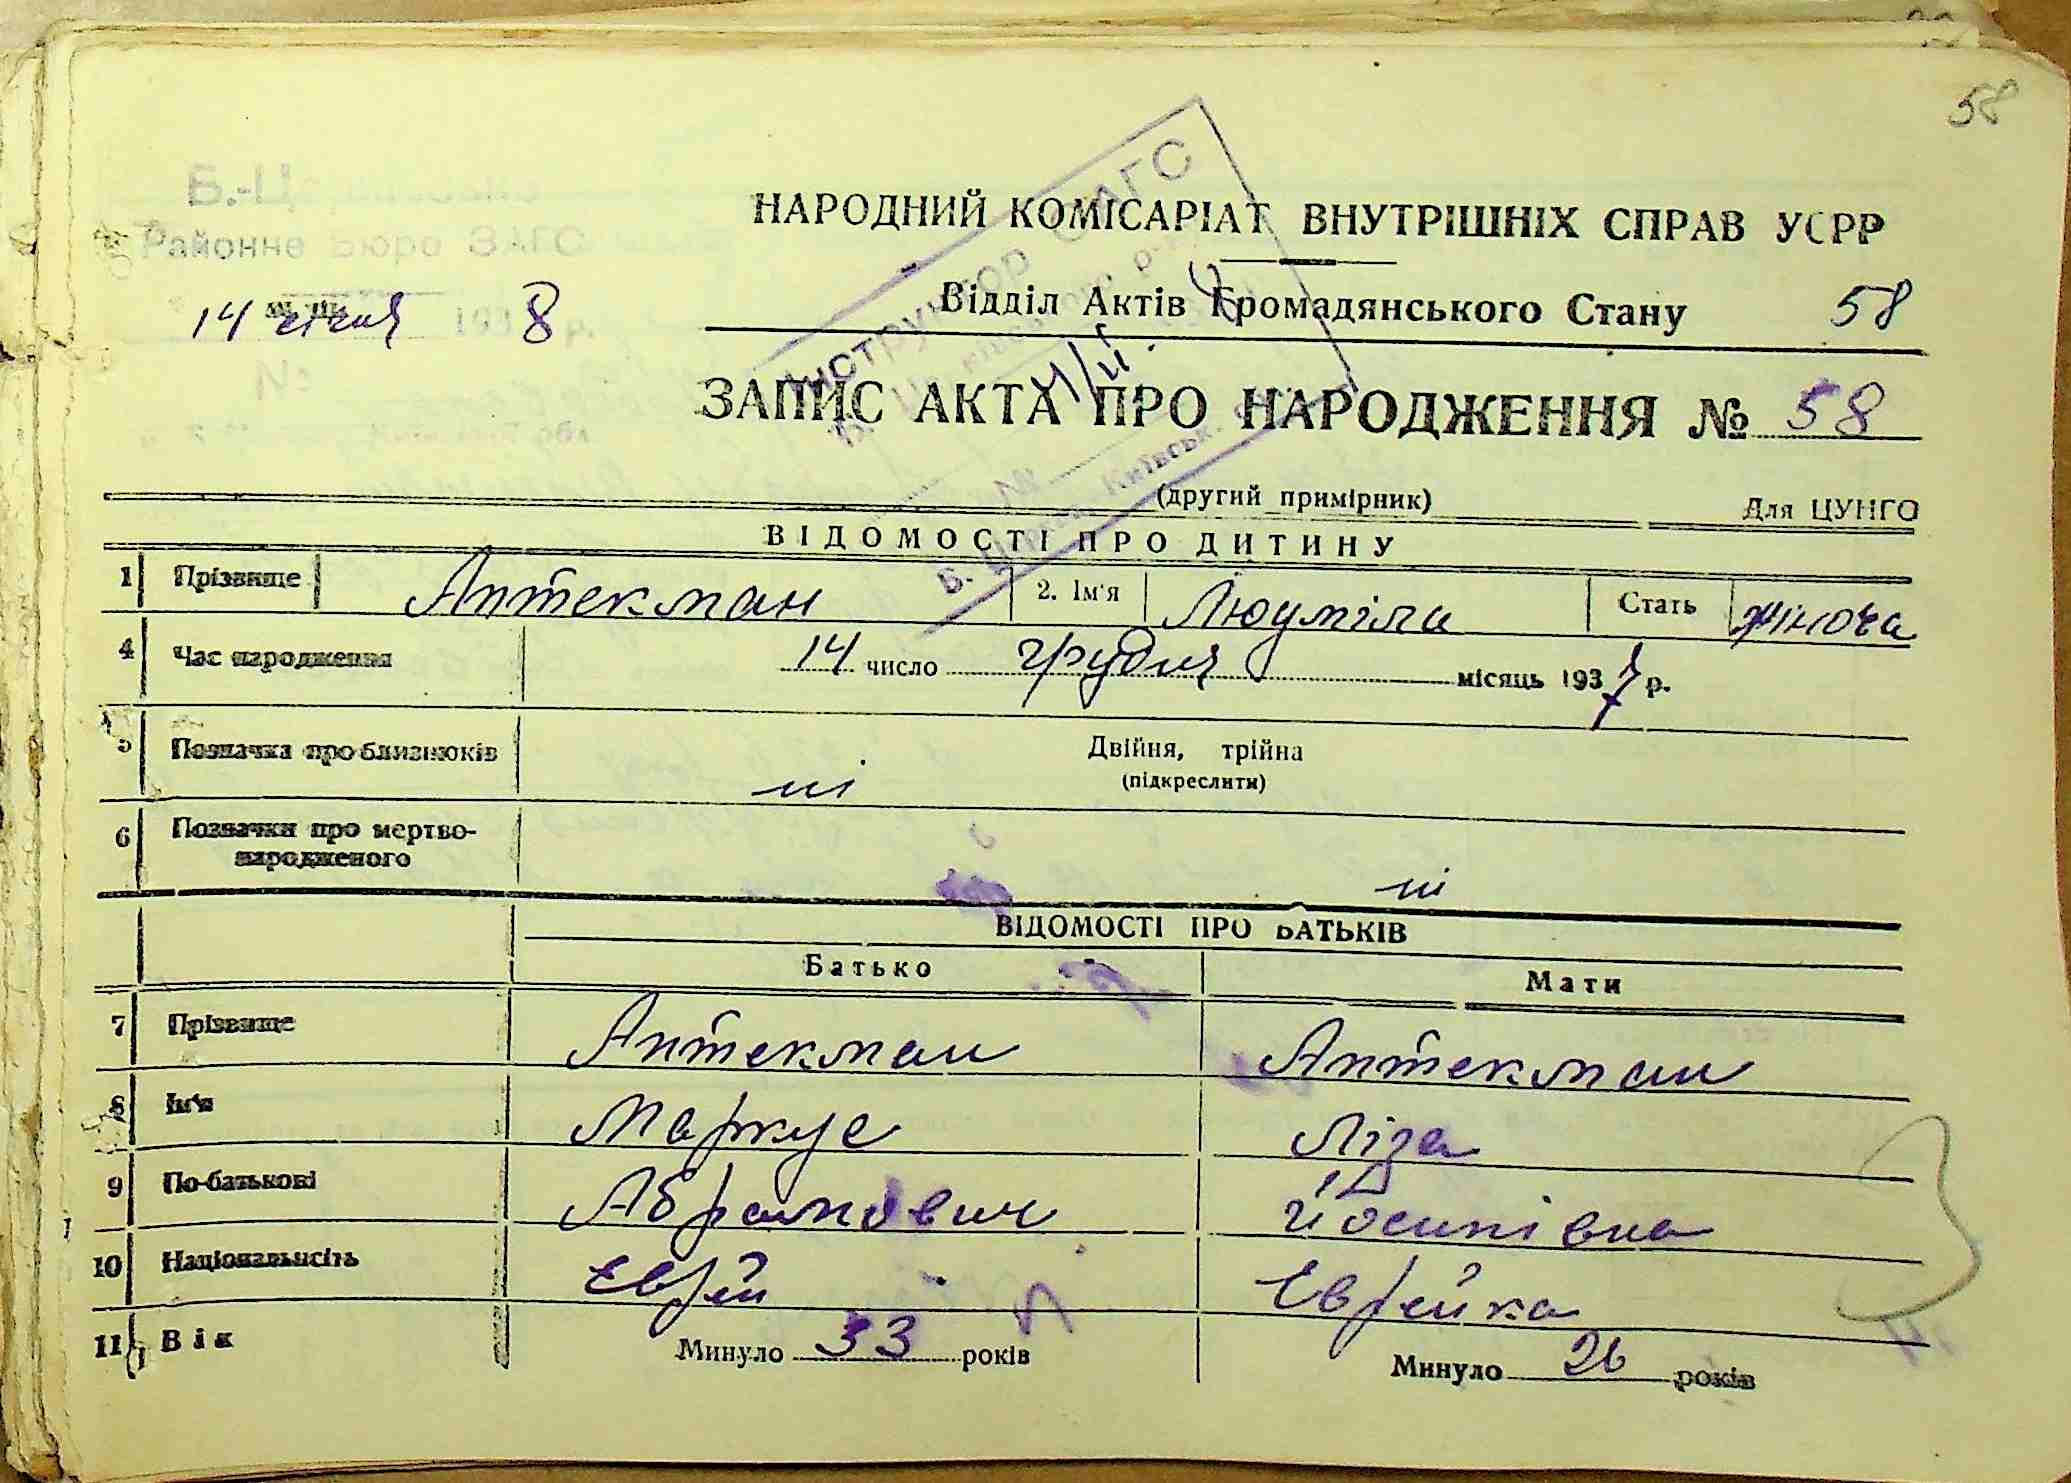 58
Б.-Ц
Районне Бюро ЗАГС
14 січня 1938 р.
№
НАРОДНИЙ КОМІСАРІАТ ВНУТРІШНІХ СПРАВ УСРР
Відділ Актів Громадянського Стану 58
Інструктор ЗАГС
Б. Церква, Київськ.
ЗАПИС АКТА ПРО НАРОДЖЕННЯ № 58
(другий примірник) Для ЦУНГО
ВІДОМОСТІ ПРО ДИТИНУ
1 Прізвище Аптекман 2. Ім'я Людміла Стать жіноча
4 Час народження 14 число грудня місяць 1937 р.
5 Позначка про близнюків ні Двійня, трійна
(підкреслити)
6 Позначки про мертво-
народженого ні
ВІДОМОСТІ ПРО БАТЬКІВ
Батько Мати
7 Прізвище Аптекман Аптекман
8 Ім'я Маркус Ліза
9 По-батькові Абрамович Йосипівна
10 Національність Єврей Єврейка
11 Вік Минуло 33 років Минуло 26 років